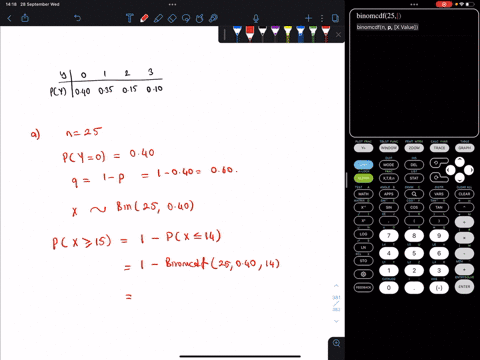 14:16 28 September Wed
y 0 1 2 3
P(Y) 0.40 0.35 0.15 0.10
a) n=25
P(Y=0) = 0.40
q = 1-P = 1-0.40= 0.60.
X ~ Bin(25, 0.40)
P(X≥15) = 1 - P(X≤14)
= 1 - Binomcdf(25,0.40,14)
=
binomcdf(25,
binomcdf(n, p, [X Value])
WINDOW
ZOOM
TRACE
GRAPH
DEL
STAT
MATH
APPS
PRGM
VARS
CLEAR
SIN
COS
TAN
LOG
7 8 9
LN
4 5 6
STO
1 2 3
0 . (-)
ENTER
FEEDBACK